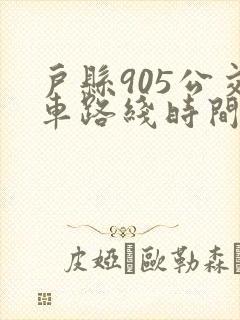 戶縣905公交
車路綫時間
皮婭 歐勒森